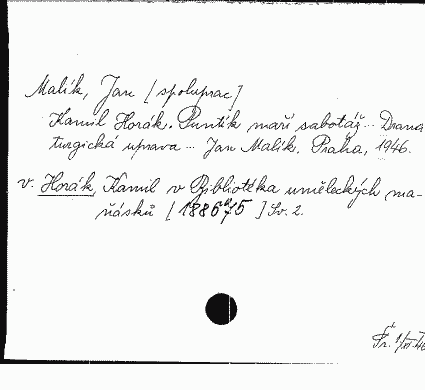 Malík, Jan [spoluprac]
Kamil Horák. Puntík maří sabotáž... Drama
turgická úprava... Jan Malík. Praha, 1946.
v. Horák, Kamil v Bibliotéka uměleckých ma-
ňásků [188675] Sv. 2.